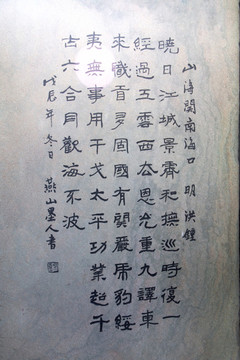 山海關南海口 明 洪鐘
曉日江城景霽和撫巡時復一
經過五雲西望恩光重九譯東
來職貢多固國有關嚴虎豹綏
夷無事用干戈太平功業超千
古六合同觀海不波
戊辰年冬日 燕山墨人書